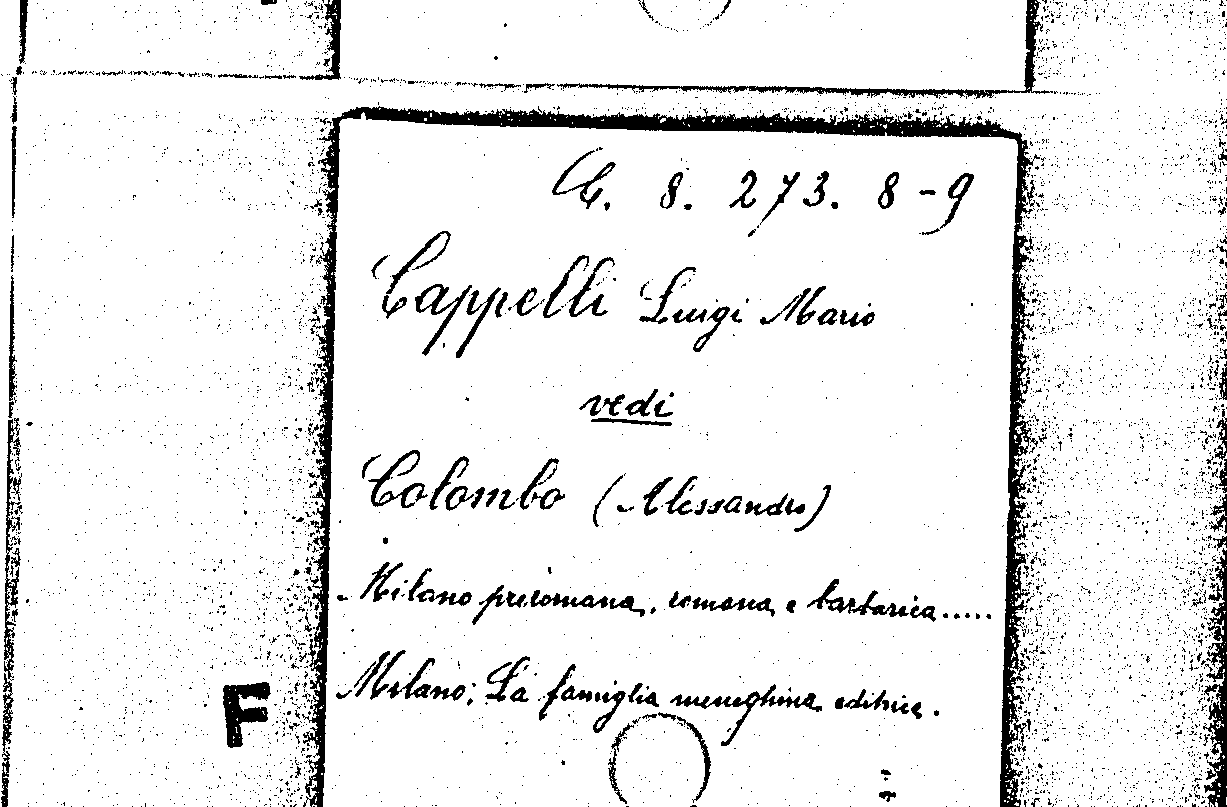 G. 8. 273. 8-9
Cappelli Luigi Mario
vedi
Colombo (Alessandro)
Milano preromana, romana e barbarica.....
Milano; La famiglia meneghina editrice.
F